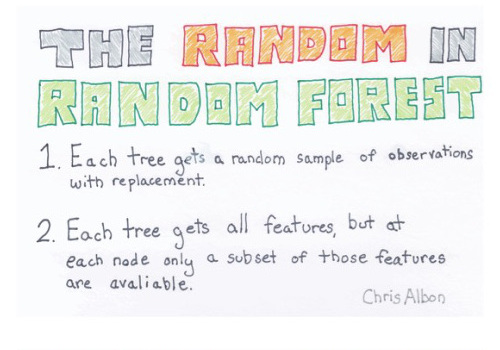 THE RANDOM IN
RANDOM FOREST
1. Each tree gets a random sample of observations
with replacement.
2. Each tree gets all features, but at
each node only a subset of those features
are avaliable.
Chris Albon